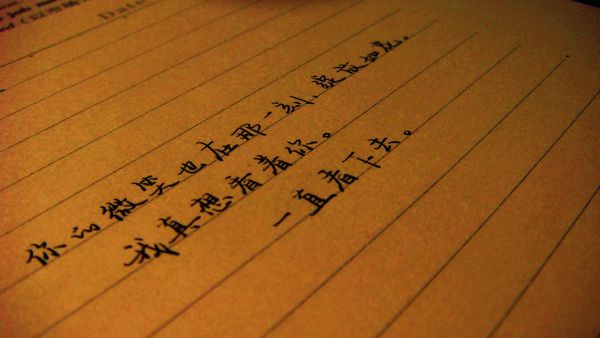 你的微笑也在那一刻、绽放如花。
我真想看着你。
一直看下去。